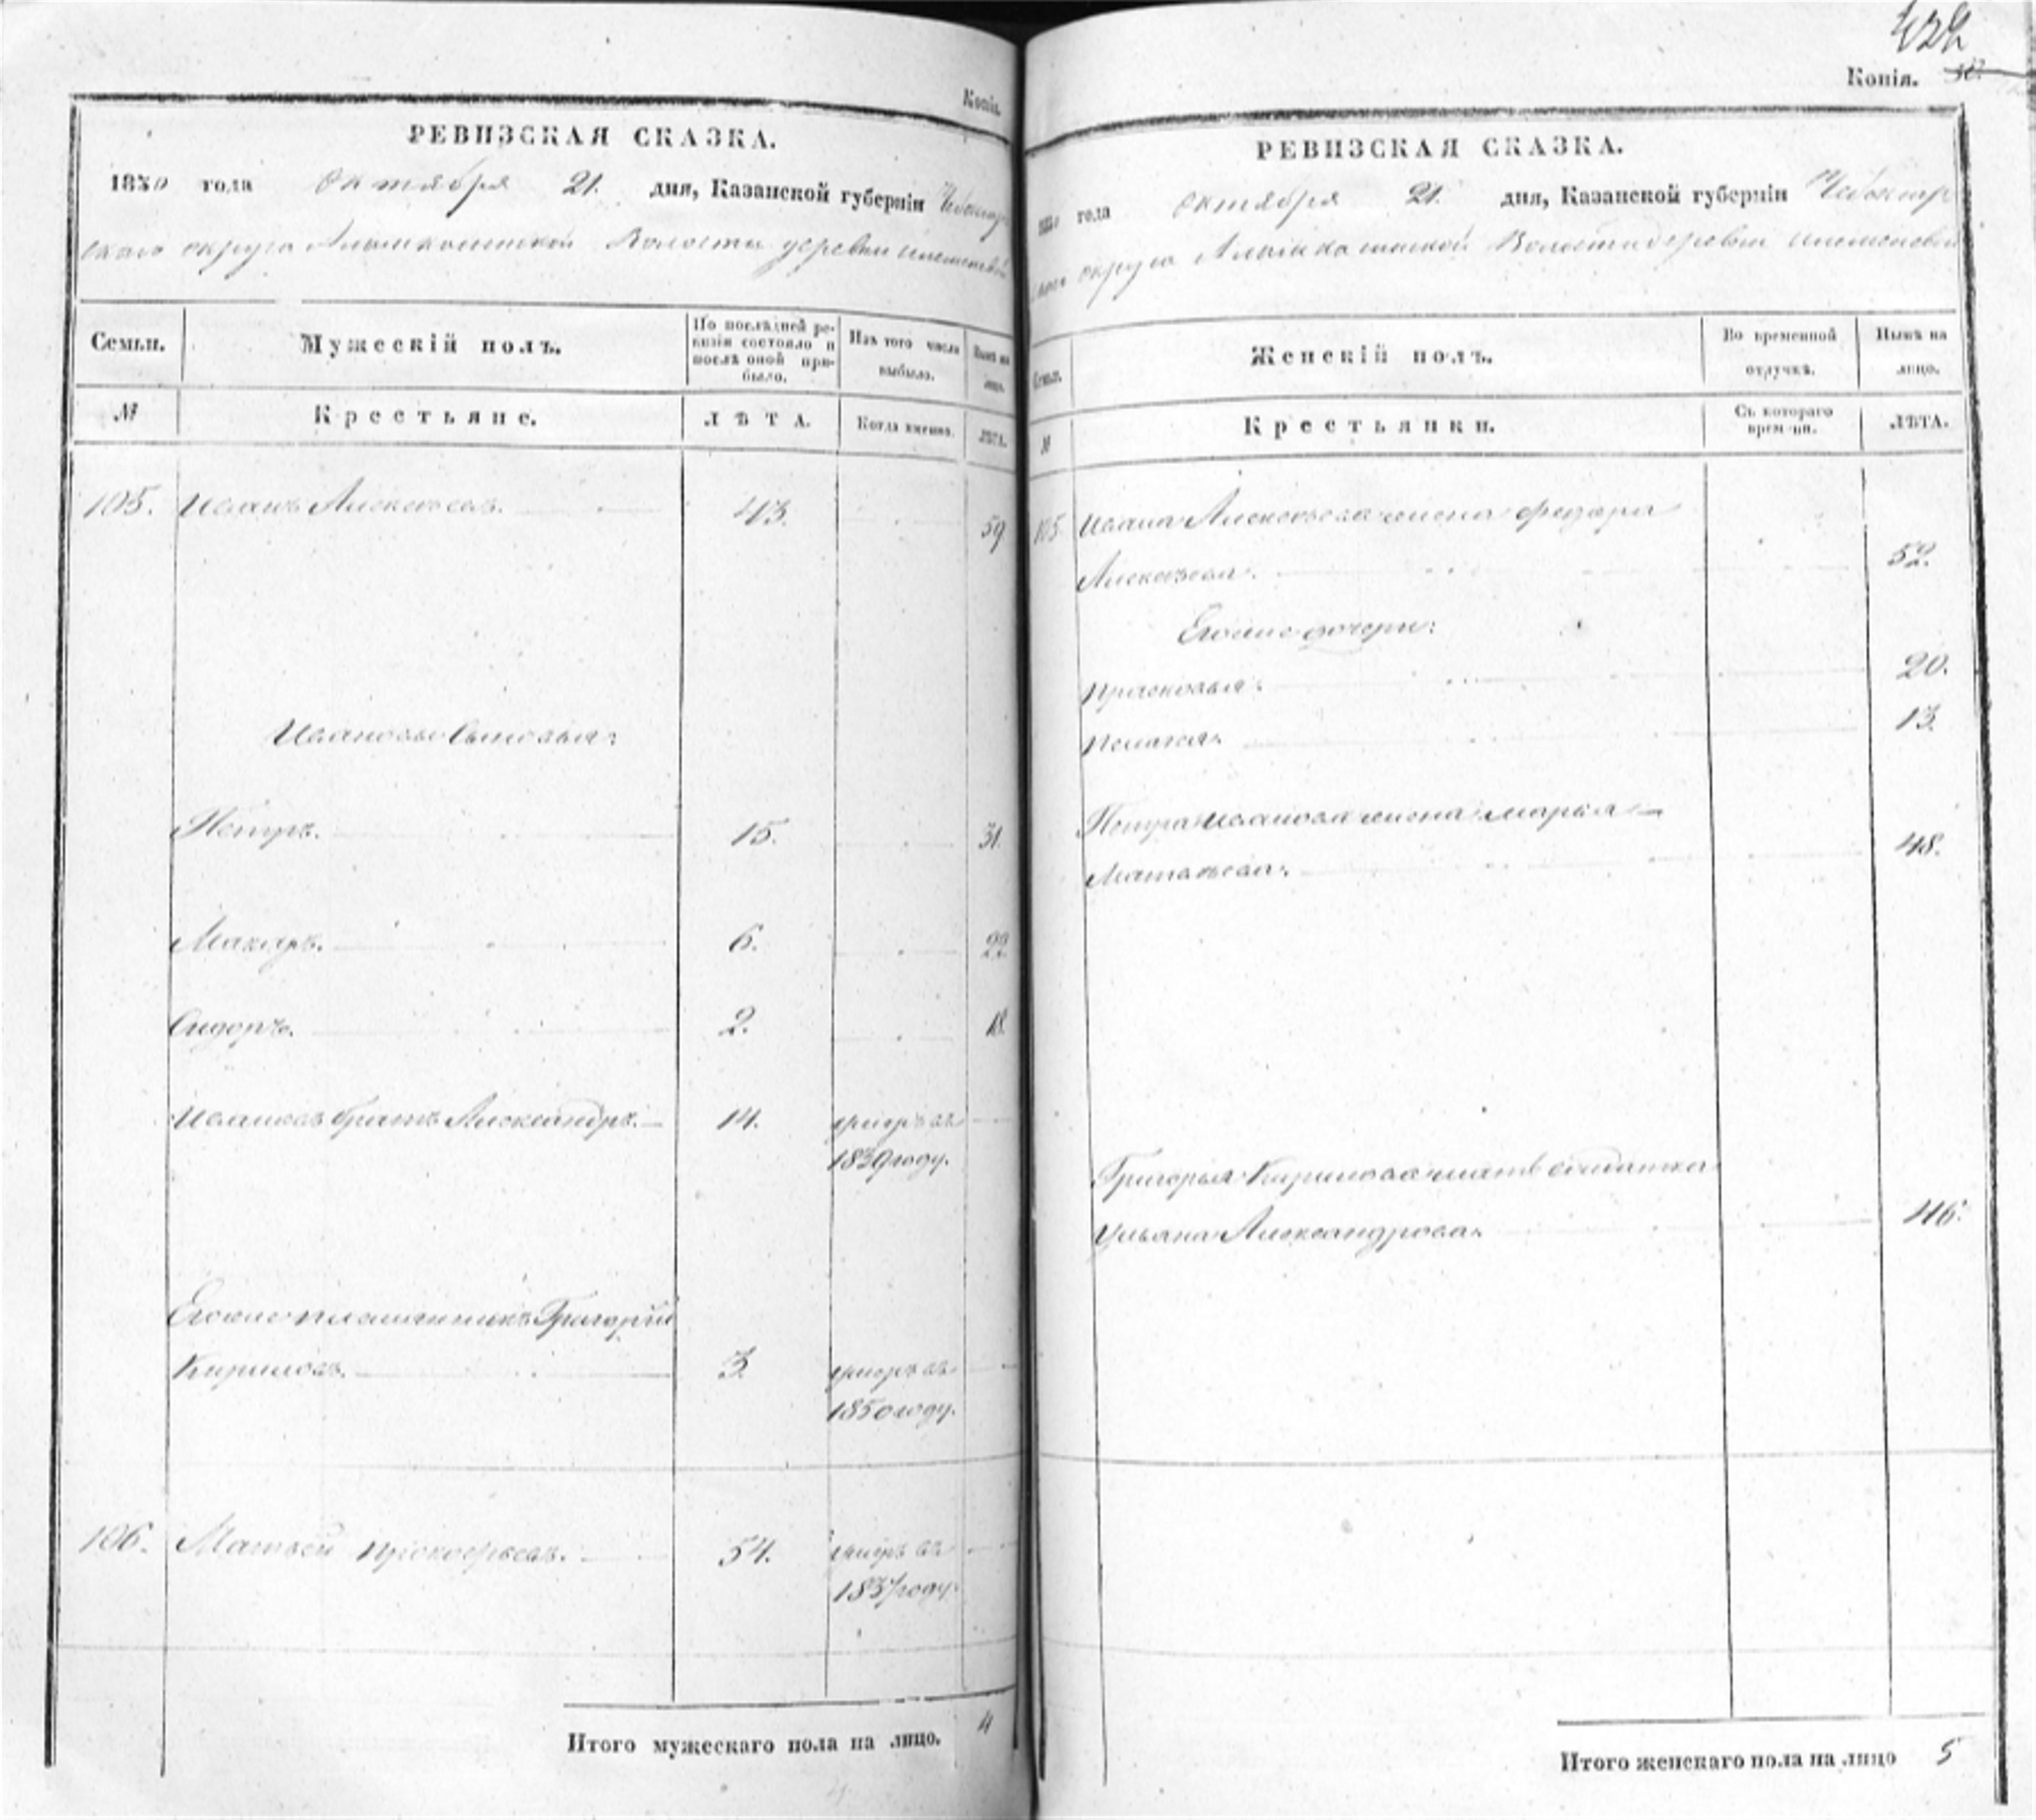 Копія.
РЕВИЗСКАЯ СКАЗКА.
1850 года октября 21. дня, Казанской губерніи Чебоксар
скаго округа Алымкасинской Волости деревни
Семьи. Мужескій полъ. По послѣдней ре-
визіи состояло и
послѣ оной при-
было. Изъ того числа
выбыло. Нынѣ на
лицо.
№ Крестьяне. ЛѢТА. Когда именно. ЛѢТА.
105. Иванъ Алексѣевъ. 43. 59
Ивановы Сыновья:
Петръ. 15. 31.
Макаръ. 6. 22
Сидоръ. 2. 18.
Ивановъ братъ Александръ. 14. умеръ въ
1839 году.
Егоже племянникъ Григорій
Кириловъ. 3. умеръ въ
1850 году.
106. Матвей Прокофьевъ. 54. умеръ въ
1837 году.
Итого мужескаго пола на лицо. 4
422
Копія.
РЕВИЗСКАЯ СКАЗКА.
1850 года октября 21. дня, Казанской губерніи Чебоксар
скаго округа Алымкасинской Волости деревни
Семьи. Женскій полъ. Во временной
отлучкѣ. Нынѣ на
лицо.
№ Крестьянки. Съ котораго
времени. ЛѢТА.
105. Ивана Алексѣева жена Федора
Алексѣева. 52.
Егоже дочери:
Прасковья. 20.
Пелагея. 13.
Петра Иванова жена Марья
Матвѣева. 48.
Григорья Кирилова мать солдатка
Ульяна Александрова. 46.
Итого женскаго пола на лицо 5